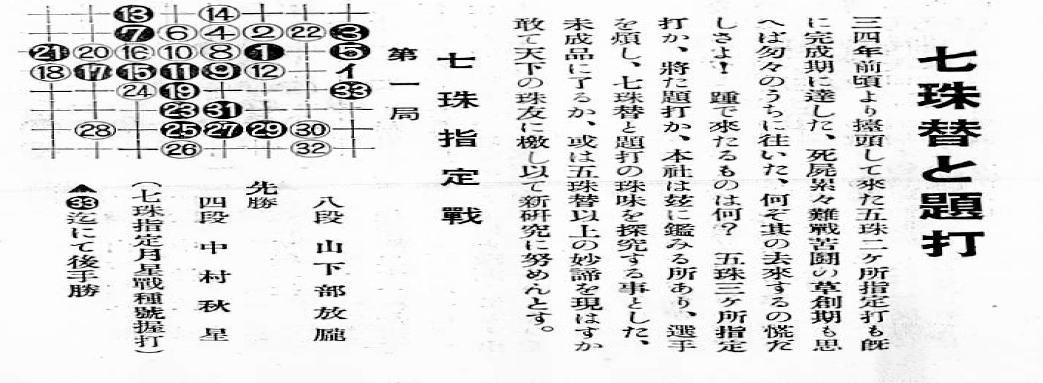 七珠替と題打
三四年前頃より擡頭して來た五珠二ヶ所指定打も既
に完成期に達した、死屍累々難戰苦鬪の草創期も思
へば匆々のうちに往いた、何ぞ其の去來するの慌だ
しさよ！ 踵で來たるものは何？ 五珠三ヶ所指定
打か、將た題打か、本社は玆に鑑みる所あり、選手
を煩し、七珠替と題打の珠味を探究する事とした、
未成品に了るか、或は五珠替以上の妙諦を現はすか
敢て天下の珠友に檄し以て新硏究に努めんとす。
七珠指定戰
第一局
⑬ ⑭
❼ ⑥ ④ ② ㉒ ❸
㉑ ⑳ ⑯ ⑩ ⑧ ❶ ❺
⑱ ⑰ ⑮ ⑪ ⑨ ⑫ イ
㉔ ⑲ ㉝
㉓ ㉛
㉘ ㉕ ㉗ ㉙ ㉚
㉖ ㉜
八段 山下部放朧
先勝
四段 中村秋星
（七珠指定月星戰種號握打）
▲㉝迄にて後手勝